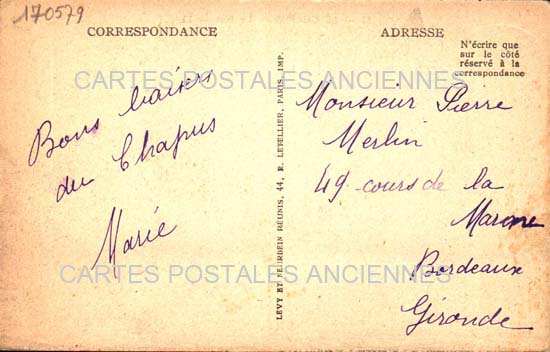 170579
CORRESPONDANCE
ADRESSE
N'écrire que
sur le côté
réservé à la
correspondance
CARTES POSTALES ANCIENNES
Bons baisers
du Chapus
Marie
LEVY ET NEURDEIN RÉUNIS, 44, R. LETELLIER, PARIS, IMP.
Monsieur Pierre
Merlin
49 cours de la
Marne
Bordeaux
Gironde
CARTES POSTALES ANCIENNES